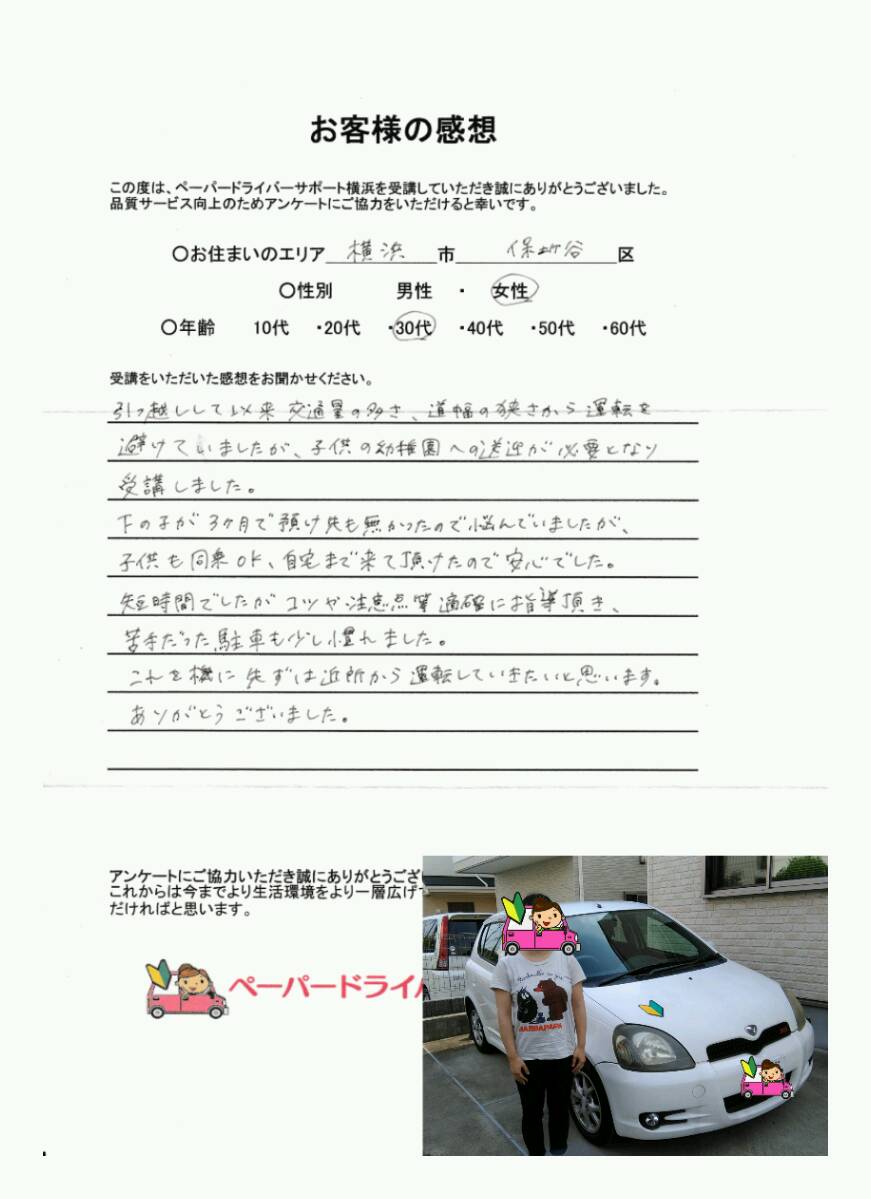 お客様の感想
この度は、ペーパードライバーサポート横浜を受講していただき誠にありがとうございました。
品質サービス向上のためアンケートにご協力をいただけると幸いです。
〇お住まいのエリア 横浜 市 保土ヶ谷 区
〇性別 男性 ・ 女性
〇年齢 10代 ・20代 ・30代 ・40代 ・50代 ・60代
受講をいただいた感想をお聞かせください。
引っ越しして以来 交通量の多さ、道幅の狭さから運転を
避けていましたが、子供の幼稚園への送迎が必要となり
受講しました。
下の子が3ヶ月で預け先も無かったので悩んでいましたが、
子供も同乗OK、自宅まで来て頂けたので安心でした。
短時間でしたがコツや注意点等適確に指導頂き、
苦手だった駐車も少し慣れました。
これを機に先ずは近所から運転していきたいと思います。
ありがとうございました。
アンケートにご協力いただき誠にありがとうござ
これからは今までより生活環境をより一層広げ
だければと思います。
ペーパードライ
BARBAPAPA